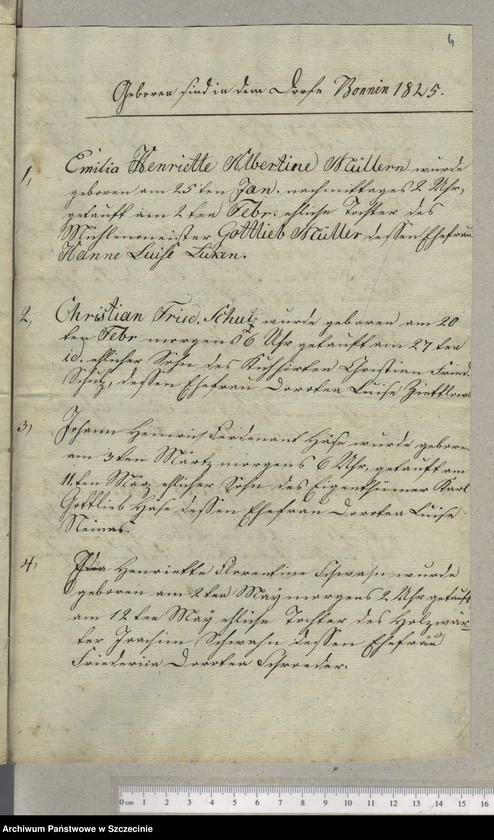 4
Geboren sind in dem Dorfe Bonnin 1825.
1, Emilia Henriette Albertine Müllern wurde
geboren am 25ten Jan. nachmittages 2 Uhr,
getauft am 2ten Febr. ehliche Tochter des
Mühlenmeister Gottlieb Müller dessen Ehefrau
Hanne Luise
2, Christian Fried. Schulz wurde geboren am 20
ten Febr morgens 6 Uhr getauft am 27ten
id. ehlicher Sohn des Kuhhirten Christian Fried.
Schulz, dessen Ehefrau Dorotea Luise
3, Johann Heinrich Ferdenant Häse wurde geboren
am 3ten Märtz morgens 6 Uhr, getauft am
11ten März ehlicher Sohn des Eigenthümer Karl
Gottlieb Häse dessen Ehefrau Dorotea Luise
4, Henriette Florentine Schwahn wurde
geboren am 2ten May morgens 2 Uhr getauft
am 12ten May ehliche Tochter des Holzwär-
ter Joachim Schwahn dessen Ehefrau
Friederica Dorotea Schroeder.
0 cm 1 2 3 4 5 6 7 8 9 10 11 12 13 14 15 16
Archiwum Państwowe w Szczecinie